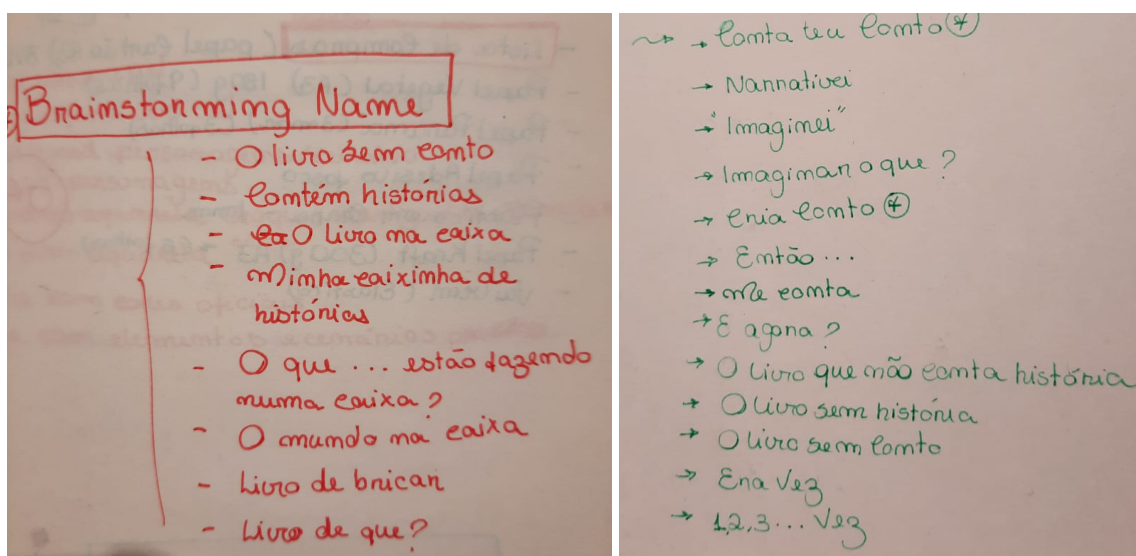 Brainstorming Name
- O livro sem conto
- Contém histórias
- O livro na caixa
- Minha caixinha de
histórias
- O que ... estão fazendo
numa caixa?
- O mundo na caixa
- Livro de brincar
- Livro de que?
→ Conta teu Conto
→ Narrativei
→ "Imaginei"
→ Imaginar o que?
→ Cria Conto
→ Então...
→ Me conta
→ E agora?
→ O livro que não conta história
→ O livro sem história
→ O livro sem Conto
→ Era Vez
→ 1,2,3... Vez